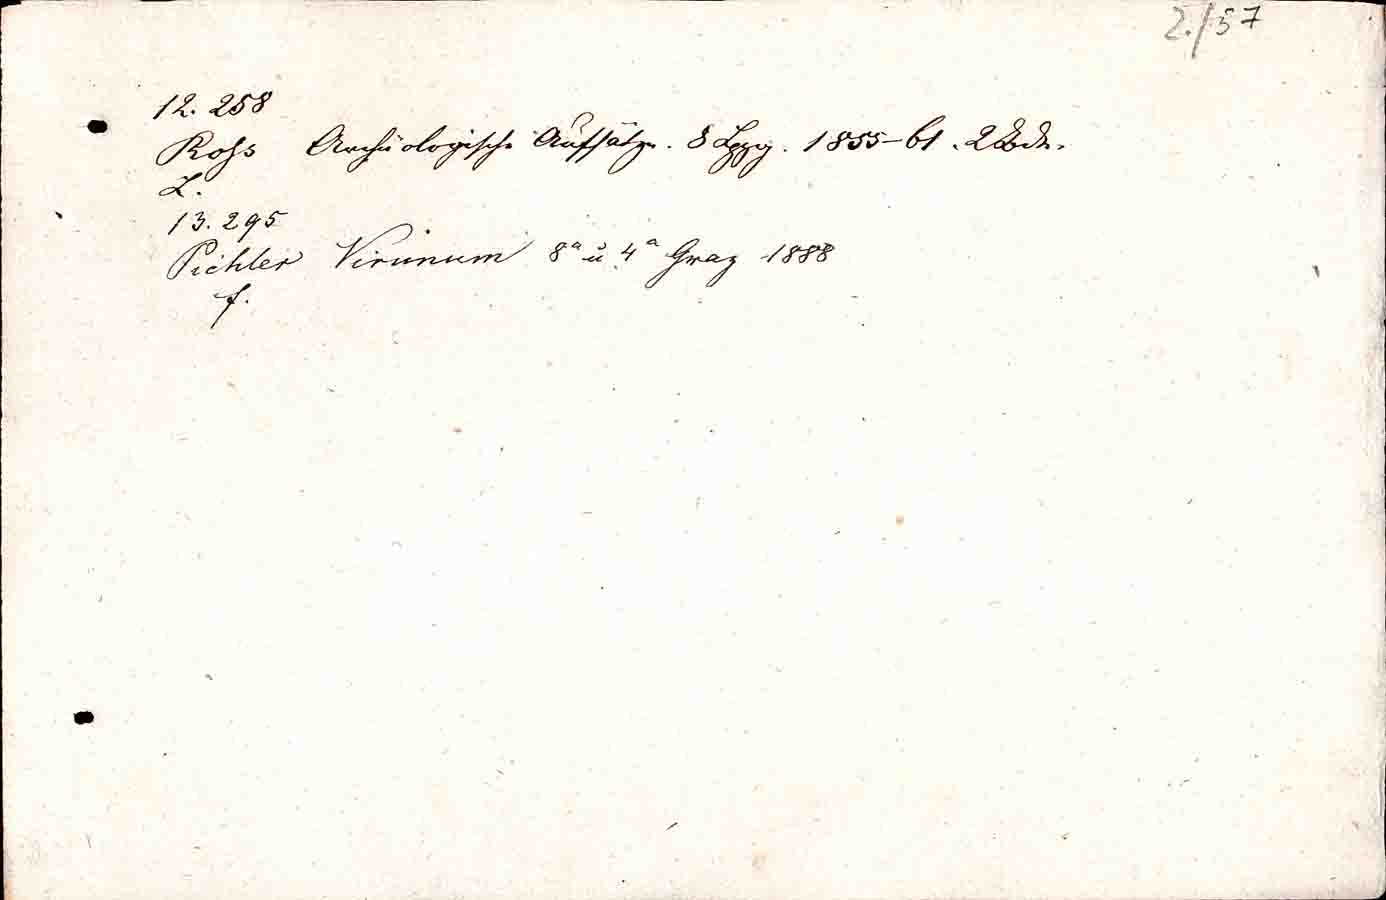 2./57
12. 258
Roſs Archäologische Aufsätze. 8 Lpzg. 1855-61. 2 Bde.
Z.
13. 295
Pichler Virunum 8° u 4° Graz 1888
f.